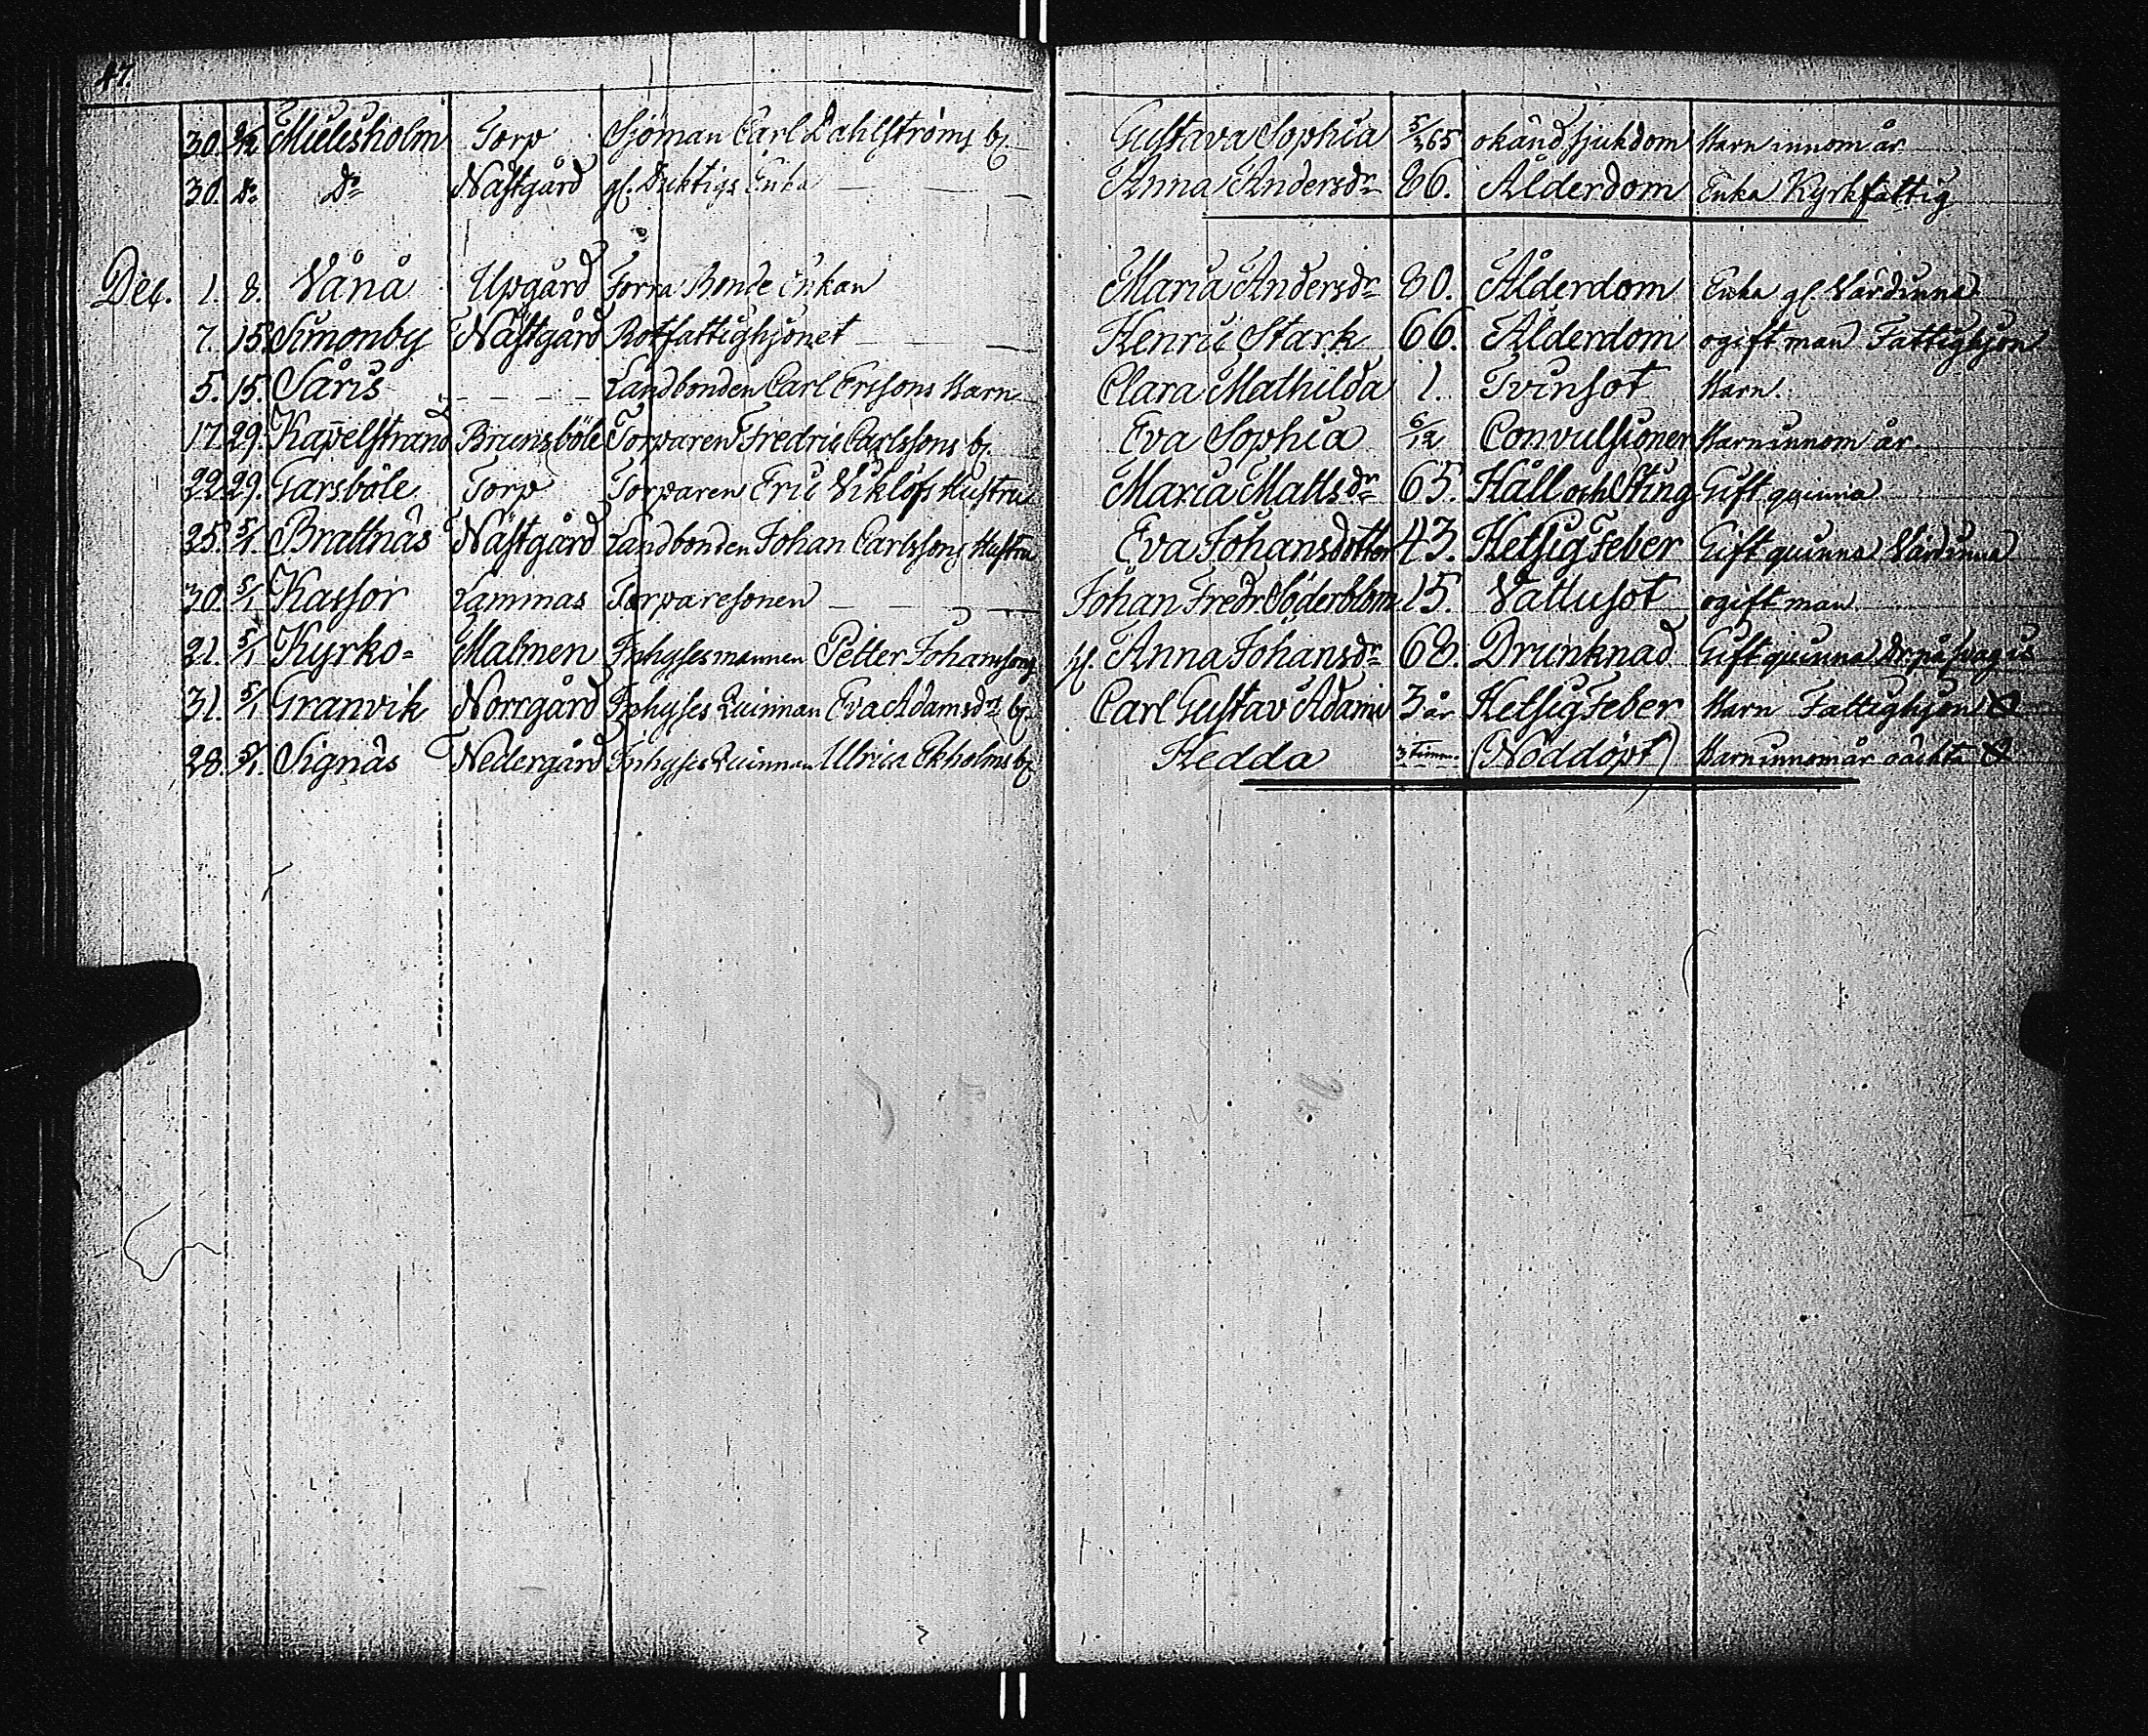 47.
30. 2/12 Mielisholm Torp Sjöman Carl Dahlströms b. Gustava Sophia 5/365 okänd sjukdom Barn innom år
30. Do Do Nästgård gl. Duktigs Enka Anna Andersdr 86. Ålderdom Enka Kyrkfattig
Dec. 1. 8. Vånå Upgård Förra Bonde Enkan Maria Andersdr 80. Ålderdom Enka gl. Värdinna
7. 15. Simonby Nästgård Rotfattighjonet Henric Stark 66. Ålderdom ogift man Fattighjon
5. 15. Såris Landbonden Carl Erssons Barn Clara Mathilda 1. Tvinsot Barn.
17. 29. Kapelstrand Brunsböle Torparen Fredric Carlssons b. Eva Sophia 6/12 Convulsioner Barn innom år
22. 29. Garsböle Torp Torparen Eric Viklöfs Hustru Maria Mattsdr 65. Håll och Sting Gift quinna
25. 5/1. Brattnäs Nästgård Landbonden Johan Carlssons Hustru Eva Johansdotter 43. Hetsig Feber Gift quinna Värdinna
30. 5/1 Kassor Lammas Torparesonen Johan Fredr Söderblom 15. Vattusot ogift man
21. 5/1 Kyrko= Malmen Inhysesmannen Petter Johanssons h. Anna Johansdr 68. Drunknad Gift quinna Dr. på svag is
31. 5/1 Granvik Norrgård Inhyses Quinnan Eva Adamsdr b. Carl Gustav Adami 3 år Hetsig Feber Barn Fattighjon
28. 5/1. Signäs Nedergård Inhyses Quinnan Ulrica Ekholms b. Hedda 3 timm. (Nöddöpt) Barn innom år oächta